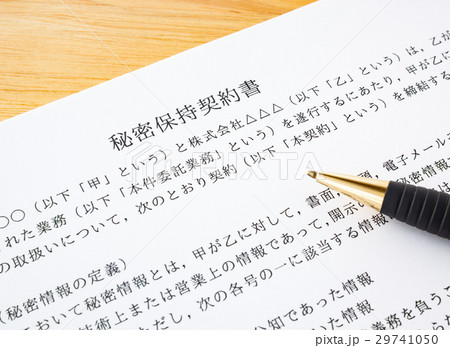 秘密保持契約書
○○（以下「甲」という）と株式会社△△△（以下「乙」という）は，乙が
された業務（以下「本件委託業務」という）を遂行するにあたり，甲が乙に
の取扱いについて，次のとおり契約（以下「本契約」という）を締結する
（秘密情報の定義）
において秘密情報とは，甲が乙に対して，書面，口頭，電子メール
技術上または営業上の情報であって，開示
ただし，次の各号の一に該当する情報
公知であった情報
義務を負うこ
た情報
PIXTA
pixta.jp - 29741050